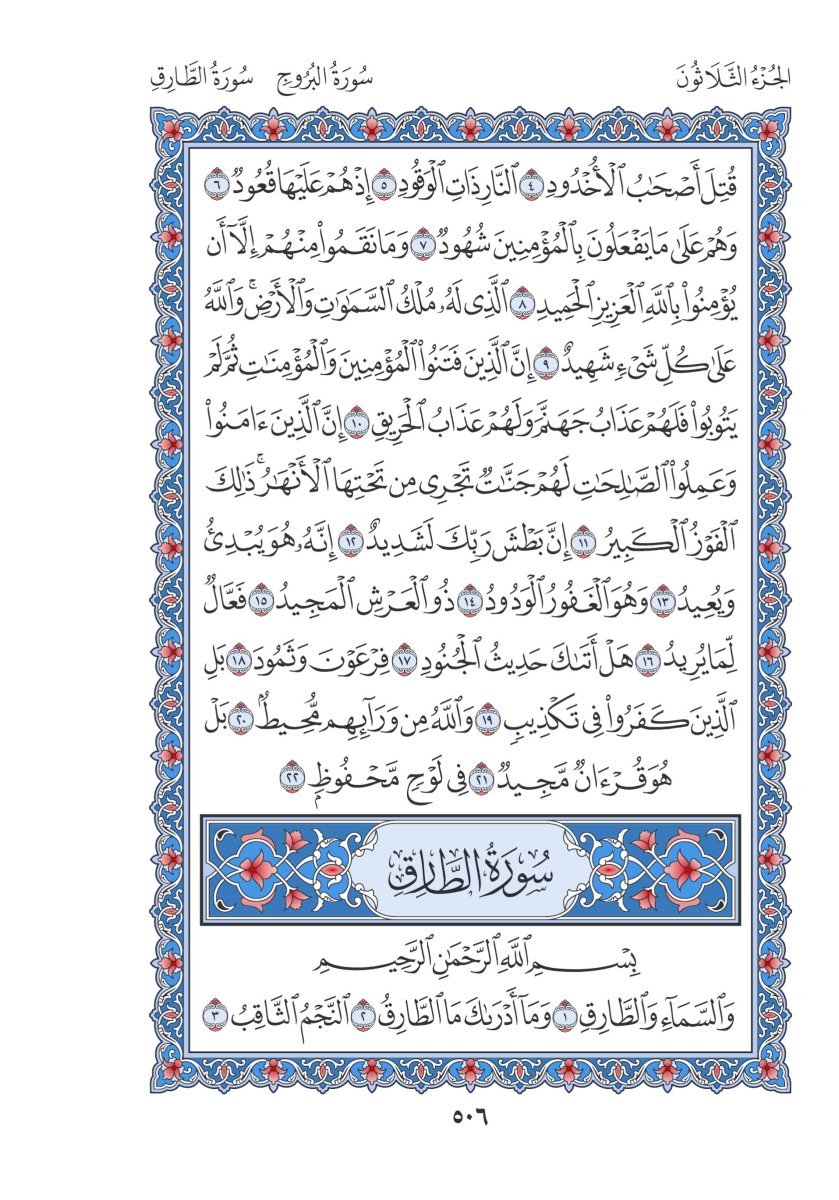 الجُزْءُ الثَّلَاثُونَ سُورَةُ البُرُوجِ سُورَةُ الطَّارِقِ
قُتِلَ أَصْحَٰبُ ٱلْأُخْدُودِ ٤ ٱلنَّارِ ذَاتِ ٱلْوَقُودِ ٥ إِذْ هُمْ عَلَيْهَا قُعُودٌ ٦
وَهُمْ عَلَىٰ مَا يَفْعَلُونَ بِٱلْمُؤْمِنِينَ شُهُودٌ ٧ وَمَا نَقَمُوا۟ مِنْهُمْ إِلَّآ أَن
يُؤْمِنُوا۟ بِٱللَّهِ ٱلْعَزِيزِ ٱلْحَمِيدِ ٨ ٱلَّذِى لَهُۥ مُلْكُ ٱلسَّمَٰوَٰتِ وَٱلْأَرْضِ ۚ وَٱللَّهُ
عَلَىٰ كُلِّ شَىْءٍ شَهِيدٌ ٩ إِنَّ ٱلَّذِينَ فَتَنُوا۟ ٱلْمُؤْمِنِينَ وَٱلْمُؤْمِنَٰتِ ثُمَّ لَمْ
يَتُوبُوا۟ فَلَهُمْ عَذَابُ جَهَنَّمَ وَلَهُمْ عَذَابُ ٱلْحَرِيقِ ١٠ إِنَّ ٱلَّذِينَ ءَامَنُوا۟
وَعَمِلُوا۟ ٱلصَّٰلِحَٰتِ لَهُمْ جَنَّٰتٌ تَجْرِى مِن تَحْتِهَا ٱلْأَنْهَٰرُ ۚ ذَٰلِكَ
ٱلْفَوْزُ ٱلْكَبِيرُ ١١ إِنَّ بَطْشَ رَبِّكَ لَشَدِيدٌ ١٢ إِنَّهُۥ هُوَ يُبْدِئُ
وَيُعِيدُ ١٣ وَهُوَ ٱلْغَفُورُ ٱلْوَدُودُ ١٤ ذُو ٱلْعَرْشِ ٱلْمَجِيدُ ١٥ فَعَّالٌ
لِّمَا يُرِيدُ ١٦ هَلْ أَتَىٰكَ حَدِيثُ ٱلْجُنُودِ ١٧ فِرْعَوْنَ وَثَمُودَ ١٨ بَلِ
ٱلَّذِينَ كَفَرُوا۟ فِى تَكْذِيبٍ ١٩ وَٱللَّهُ مِن وَرَآئِهِم مُّحِيطٌۢ ٢٠ بَلْ
هُوَ قُرْءَانٌ مَّجِيدٌ ٢١ فِى لَوْحٍ مَّحْفُوظٍۭ ٢٢
سُورَةُ الطَّارِقِ
بِسْمِ ٱللَّهِ ٱلرَّحْمَٰنِ ٱلرَّحِيمِ
وَٱلسَّمَآءِ وَٱلطَّارِقِ ١ وَمَآ أَدْرَىٰكَ مَا ٱلطَّارِقُ ٢ ٱلنَّجْمُ ٱلثَّاقِبُ ٣
٥٠٦